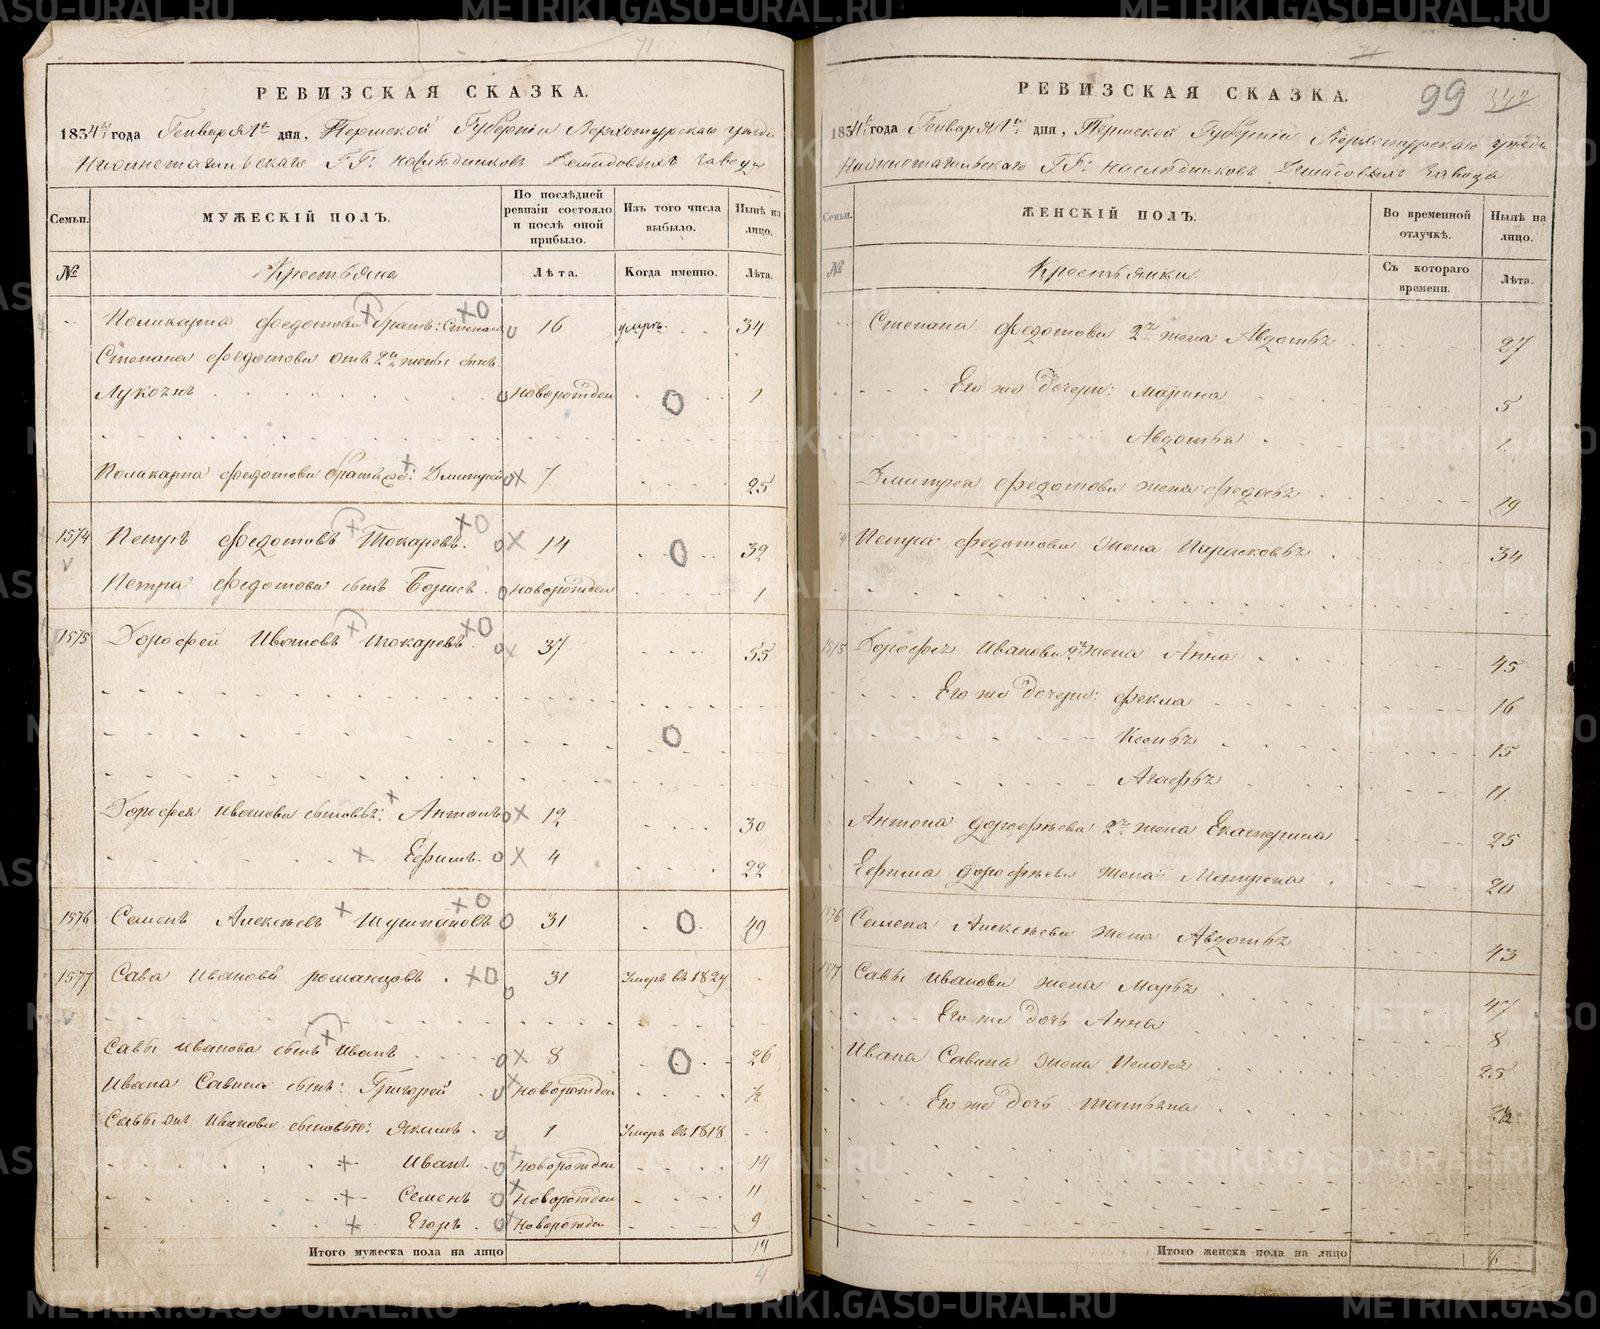 71
РЕВИЗСКАЯ СКАЗКА.
1834го года Генваря 1го дня, Пермской Губернiи Верхотурскаго уезда
Нижнетагильскаго ГГ: наследниковъ Демидовыхъ завода
Семьи.
МУЖЕСКIЙ ПОЛЪ.
По послѣдней ревизiи состояло и послѣ оной прибыло.
Изъ того числа выбыло.
Нынѣ на лицо.
№
Крестьяне
Лѣта.
Когда именно.
Лѣта.
Поликарпа Федотова братъ: Степанъ 16 34
Степана Федотова отъ 2й жены сынъ
новорожден 1
Поликарпа Федотова братъ Дмитрей 7 25
1574 Петръ Федотовъ Токаревъ. 14 32
Петра Федотова сынъ Борисъ. новорожден 1
1575 Дорофей Ивановъ Токаревъ 37 55
Дорофея Иванова сыновья: Антонъ 12 30
Ефимъ 4 22
1576 Семенъ Алексѣевъ 31 49
1577 Сава Ивановъ Романцовъ. 31 Умеръ въ 1827
Савы Иванова сынъ Иванъ 8 26
Ивана Савина сынъ: Григорей новорожден ½
Савы Иванова сыновья: Якимъ 1 Умеръ въ 1818
Иванъ новорожден 14
Семенъ новорожден 11
Егоръ новорожден 9
Итого мужеска пола на лицо 14
4
РЕВИЗСКАЯ СКАЗКА.
99
1834го года Генваря 1го дня, Пермской Губернiи Верхотурскаго уезда
Нижнетагильскаго ГГ: наследниковъ Демидовыхъ завода
Семьи.
ЖЕНСКIЙ ПОЛЪ.
Во временной отлучкѣ.
Нынѣ на лицо.
№
Крестьянки.
Съ котораго времени.
Лѣта.
Степана Федотова 2я жена Авдотья 27
Его же дочери: Марина 5
Авдотья 1
Дмитрея Федотова жена Федосья 19
Петра Федотова жена Парасковья 34
1575 Дорофея Иванова 2я жена Анна 45
Его же дочери: Фекла 16
Ксенья 15
Агафья 11
Антона Дорофѣева 2я жена Екатерина 25
Ефима Дорофѣева жена Матрена 20
1576 Семена Алексѣева жена Авдотья 43
1577 Савы Иванова жена Марья 47
Его же дочь Анна 8
Ивана Савина жена Пелагея 25
Его же дочь Татьяна 2½
Итого женска пола на лицо 16
METRIKI.GASO-URAL.RU